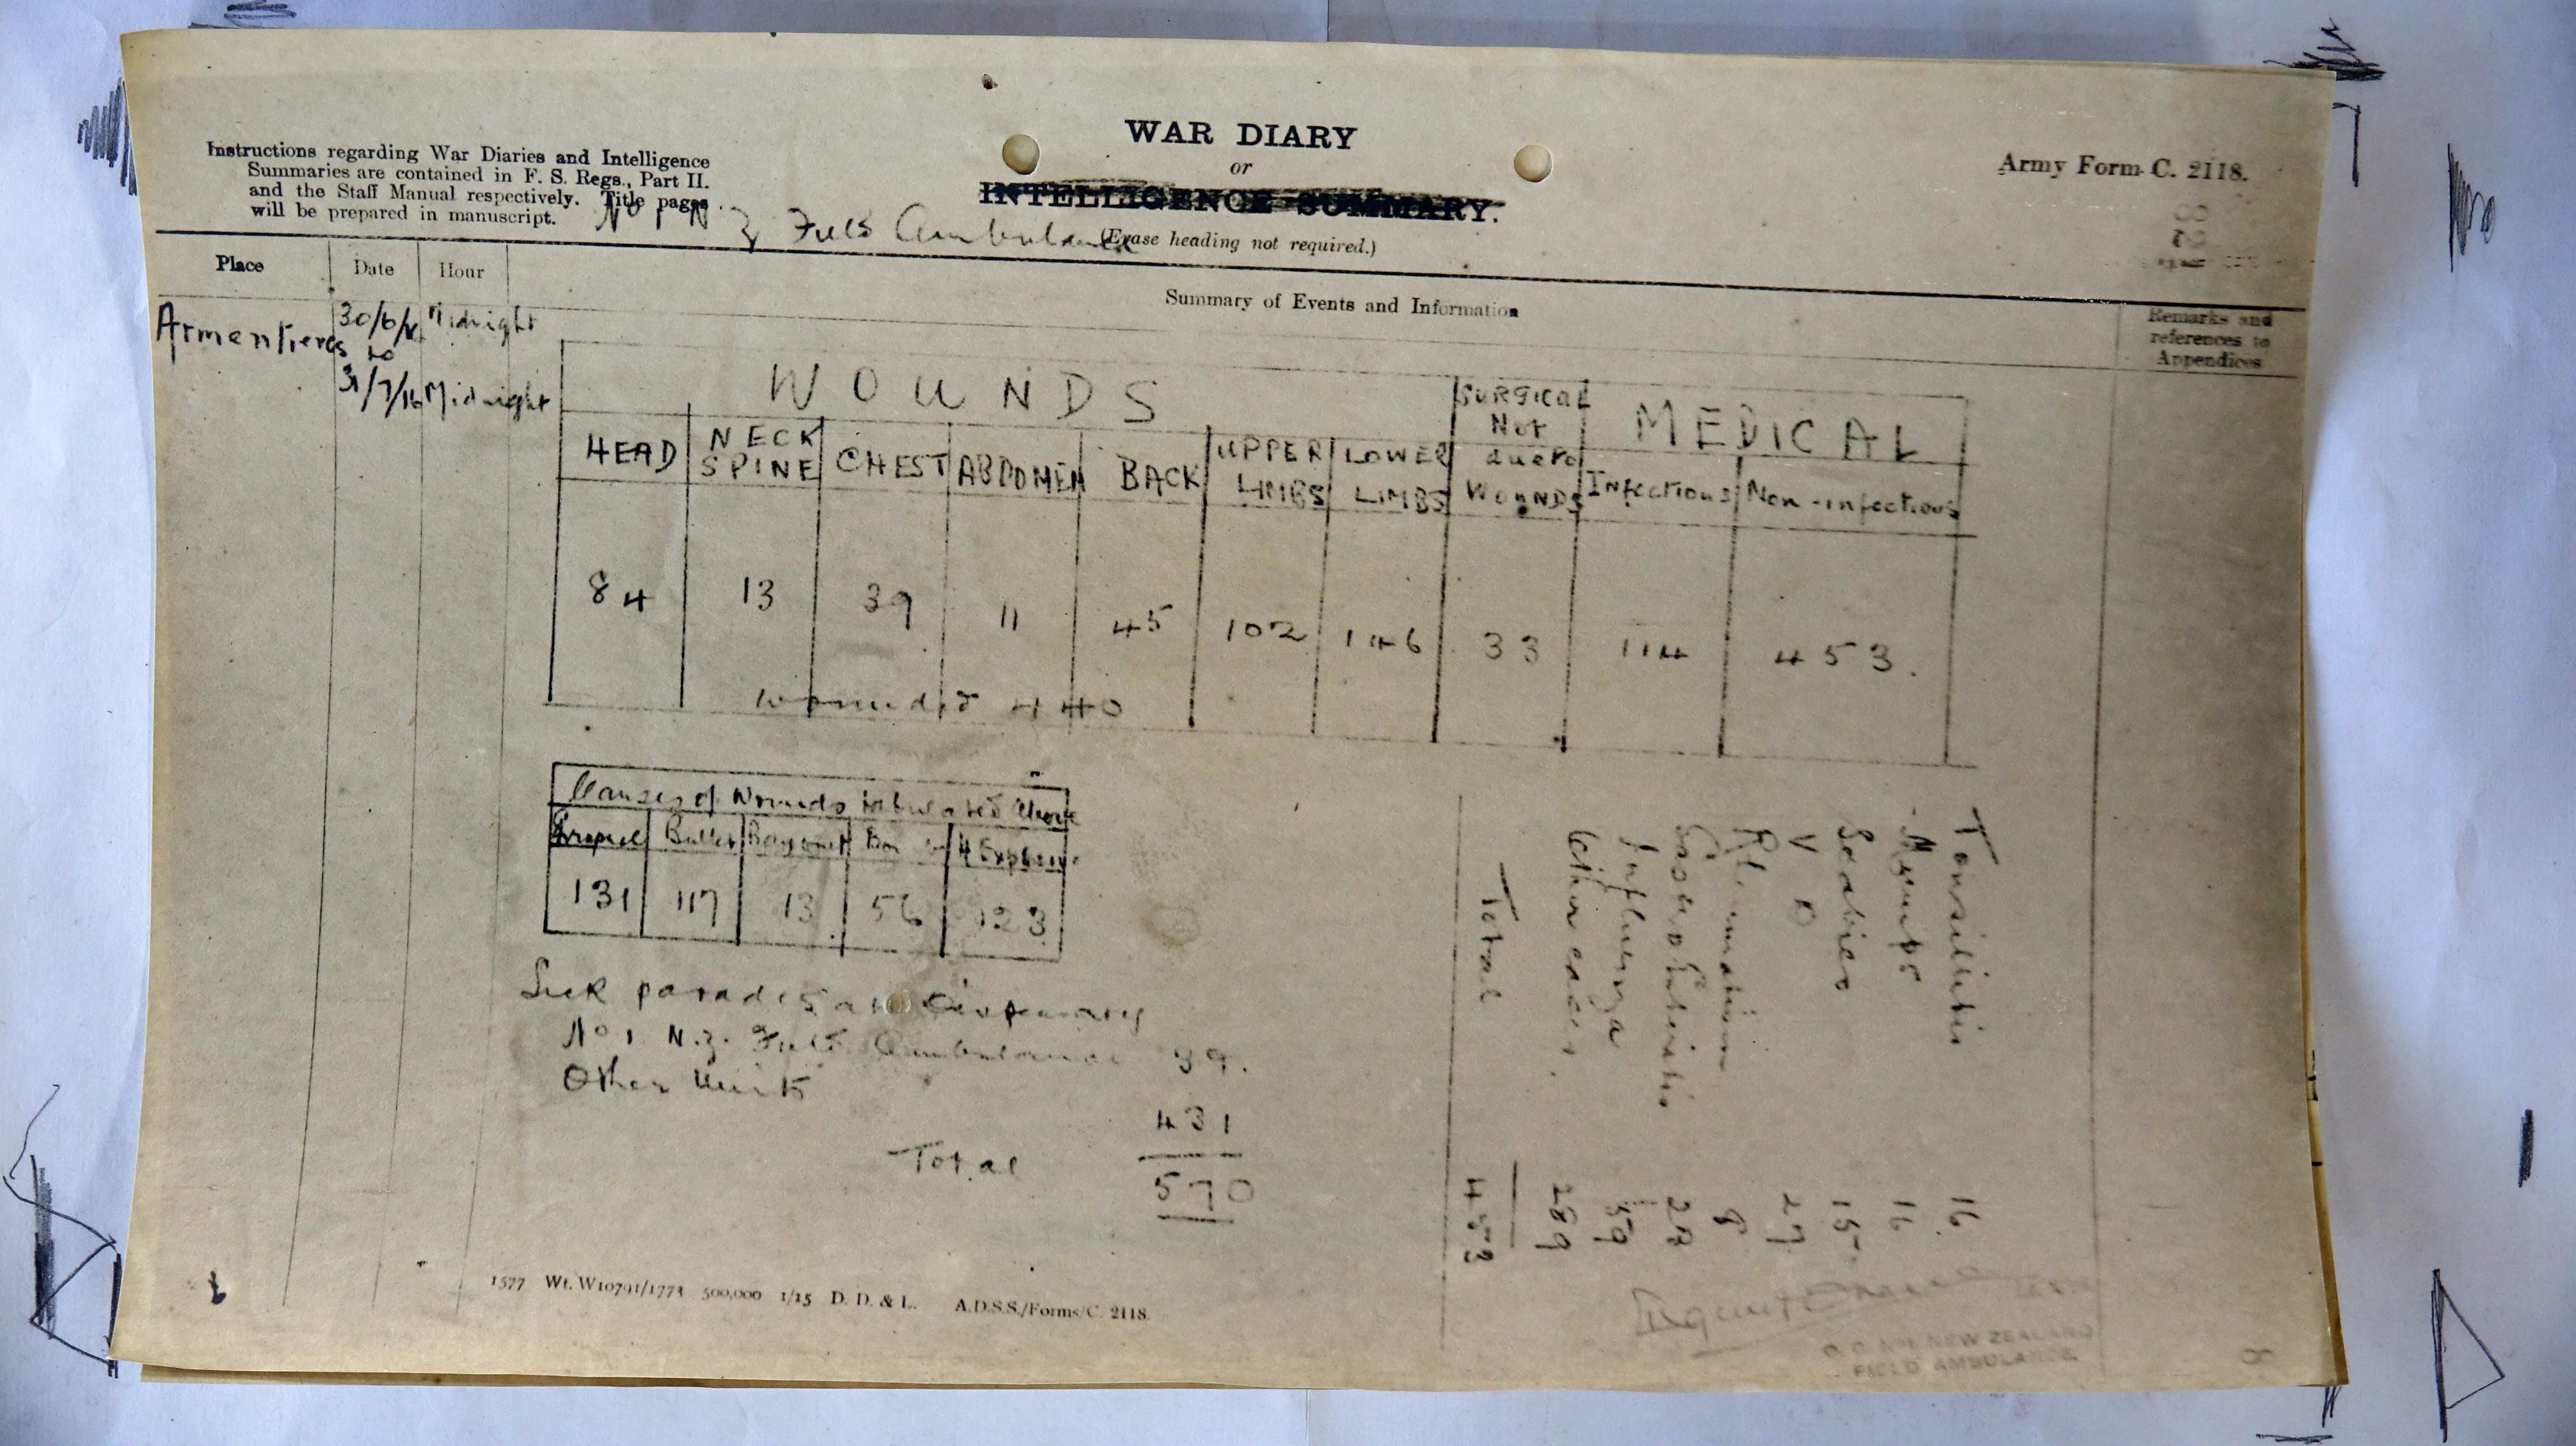 WAR DIARY
or
INTELLIGENCE SUMMARY.
(Erase heading not required.)
Instructions regarding War Diaries and Intelligence
Summaries are contained in F. S. Regs., Part II.
and the Staff Manual respectively. Title pages
will be prepared in manuscript.
No 1 N Z Field Ambulance
Army Form C. 2118.
Place Date Hour
Summary of Events and Information
Remarks and
references to
Appendices
Armentieres 30/6/16 Midnight
to
31/7/16 Midnight
WOUNDS
SURGICAL
Not
due to
WOUNDS
MEDICAL
HEAD
NECK
SPINE
CHEST
ABDOMEN
BACK
UPPER
LIMBS
LOWER
LIMBS
Infectious
Non-infectious
84 13 39 11 45 102 146 33 114 453.
Wounded 440
Causes of Wounds tabulated above
Shrapnel Bullet Bayonet H Explosive
131 117 13 56 123
Sick parades at Dispensary
No 1 N.Z. Field Ambulance 39.
Other Units
431
Total 570
Tonsilitis 16
Mumps 16
Scabies 15
V D 27
Rheumatism 8
Influenza 59
Other cases. 289
Total 453
O.C. No 1 NEW ZEALAND
FIELD AMBULANCE
1577 Wt. W10791/1773 500,000 1/15 D. D. & L. A.D.S.S./Forms/C. 2118.